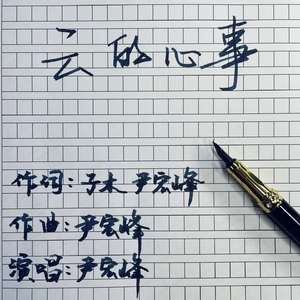 云的心事
作词:子木 尹宏峰
作曲:尹宏峰
演唱:尹宏峰